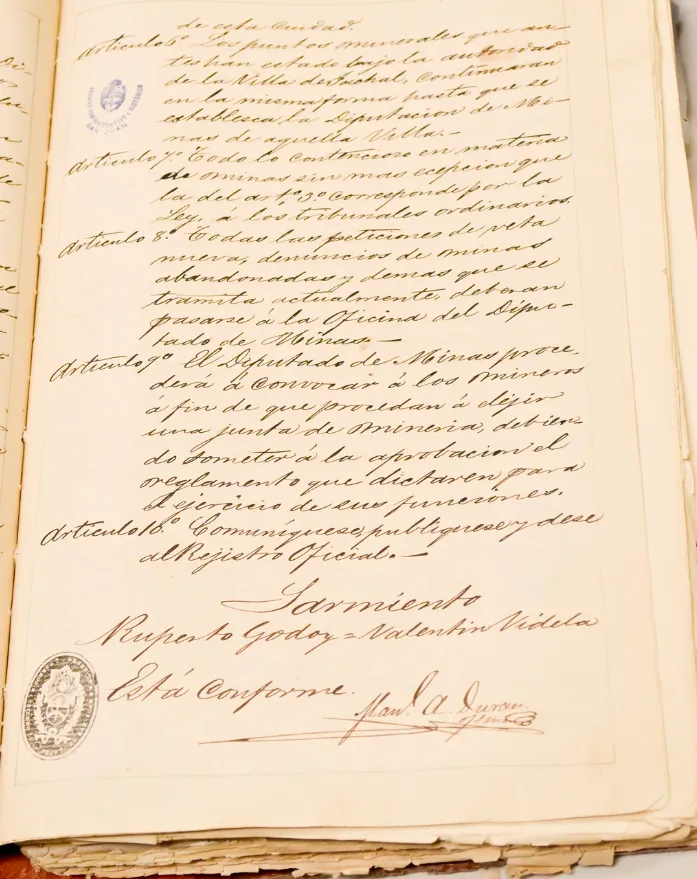 de esta Ciudad.
Articulo 6º Los puntos minerales que an-
tes han estado bajo la autoridad
de la Villa de Jachal, continuaran
en la misma forma hasta que se
establesca la Diputacion de Mi-
nas de aquella Villa.-
Articulo 7º Todo lo contencioso en materia
de minas sin mas ecepcion que
la del artº 3º corresponde por la
Ley, á los tribunales ordinarios.
Articulo 8º Todas las peticiones de veta
nueva, denuncios de minas
abandonadas y demas que se
tramita actualmente, deberan
pasarse á la Oficina del Dipu-
tado de Minas.-
Articulo 9º El Diputado de Minas proce-
derá á convocar á los mineros
á fin de que procedan á elejir
una junta de mineria, debien-
do someter á la aprobacion el
reglamento que dictaren para
el ejercicio de sus funciones.
Articulo 10º Comuníquese, publiquese y dese
al Rejistro Oficial.-
Sarmiento
Ruperto Godoy = Valentin Videla
Está Conforme.
Manl. A. Duran
SAN JUAN